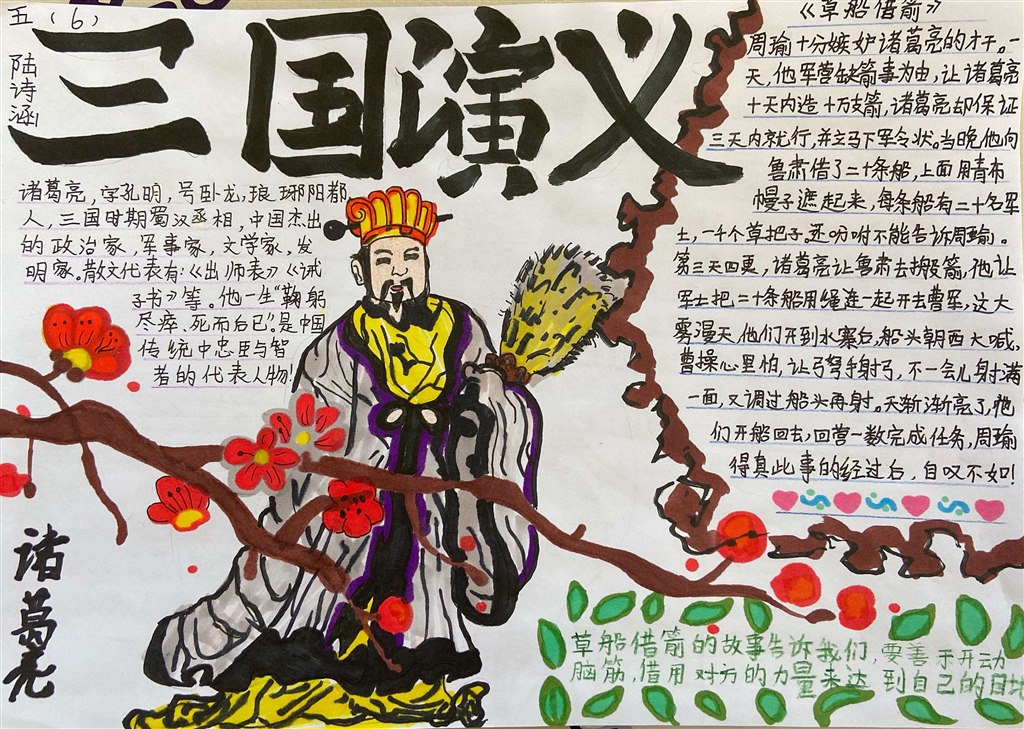 五(6)
陆诗涵
三国演义
诸葛亮,字孔明,号卧龙,琅琊阳都
人,三国时期蜀汉丞相,中国杰出
的政治家,军事家,文学家,发
明家。散文代表有《出师表》《诫
子书》等。他一生“鞠躬
尽瘁、死而后已”。是中国
传统中忠臣与智
者的代表人物!
诸葛亮
《草船借箭》
周瑜十分嫉妒诸葛亮的才干。一
天,他军营缺箭事为由,让诸葛亮
十天内造十万支箭,诸葛亮却保证
三天内就行,并立马下军令状。当晚他向
鲁肃借了二十条船,上面用青布
幔子遮起来,每条船有二十名军
士,一千个草把子。还吩咐不能告诉周瑜。
第三天四更,诸葛亮让鲁肃去搬箭,他让
军士把二十条船用绳连一起开去曹军,这大
雾漫天,他们开到水寨台,船头朝西大喊,
曹操心里怕,让弓弩手射弓,不一会儿射满
一面,又调过船头再射。天渐渐亮了,他
们开船回去,回营一数完成任务,周瑜
得真此事的经过后,自叹不如!
草船借箭的故事告诉我们,要善于开动
脑筋,借用对方的力量来达到自己的目地